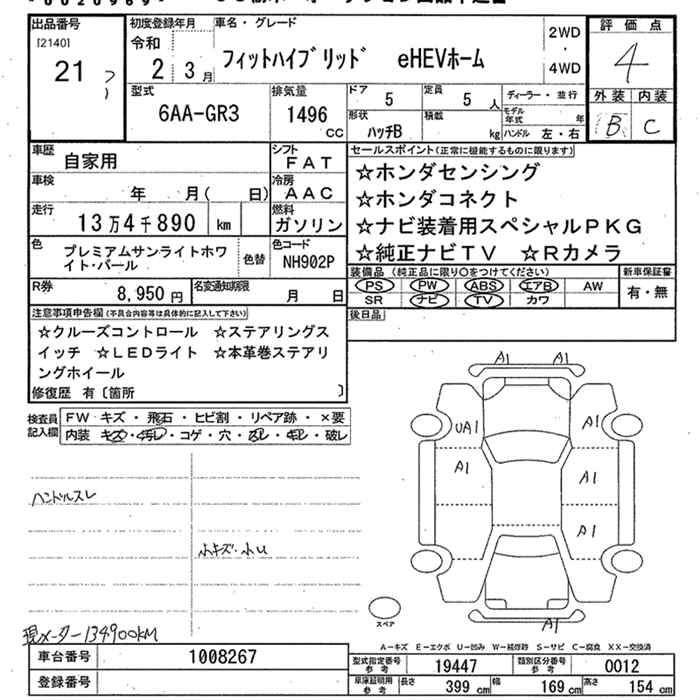 出品番号
[2140]
21
初度登録年月
令和
2 3月
車名・グレード
フィットハイブリッド eHEVホーム
2WD
・
4WD
評価点
4
外装 内装
B C
型式
6AA-GR3
排気量
1496
CC
ドア
5
定員
5 人
ディーラー・並行
形状
ハッチB
積載
kg
モデル年式 年
ハンドル 左・右
車歴
自家用
シフト
FAT
車検
年 月( 日)
冷房
AAC
走行
13万4千890 km
燃料
ガソリン
色
プレミアムサンライトホワイト・パール
色替
色コード
NH902P
R券
8,950円
名変通知期限
月 日
セールスポイント(正常に機能するものに限ります)
☆ホンダセンシング
☆ホンダコネクト
☆ナビ装着用スペシャルPKG
☆純正ナビTV ☆Rカメラ
装備品(純正品に限り○をつけてください)
PS PW ABS エアB AW
SR ナビ TV カワ
新車保証書
有・無
後日品
注意事項申告欄(不具合内容等は具体的に記入して下さい)
☆クルーズコントロール ☆ステアリングス
イッチ ☆LEDライト ☆本革巻ステアリ
ングホイール
修復歴 有〔箇所 〕
検査員
記入欄
FW キズ・飛石・ヒビ割・リペア跡・×要
内装 キズ・汚レ・コゲ・穴・スレ・キレ・破レ
ハンドルスレ
小キズ・小U
現メーター134900KM
A1 A1
UA1 A1
A1 A1
A1
A1
スペア
A-キズ E-エクボ U-凹み W-補修跡 S-サビ C-腐食 XX-交換済
車台番号
1008267
登録番号
型式指定番号
参考
19447
類別区分番号
参考
0012
車庫証明用
参考
長さ 399 cm
幅 169 cm
高さ 154 cm